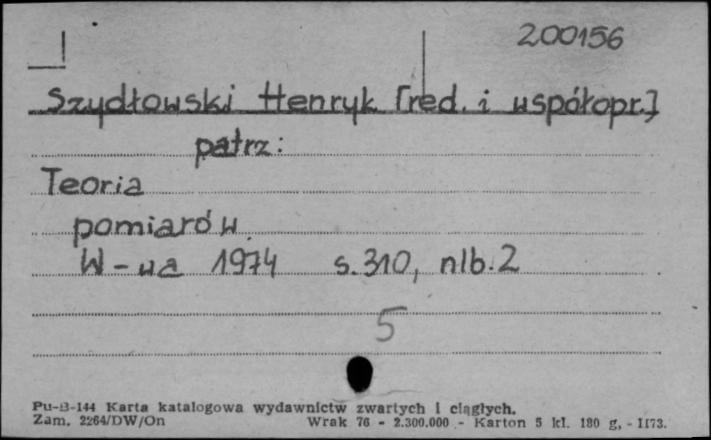 200156
Szydłowski Henryk [red. i współopr.]
patrz:
Teoria
pomiarów.
W-wa 1974 s. 310, nlb. 2
5
Pu-B-144 Karta katalogowa wydawnictw zwartych i ciągłych.
Zam. 2264/DW/On Wrak 76 - 2.300.000 - Karton 5 kl. 180 g, - 1173.